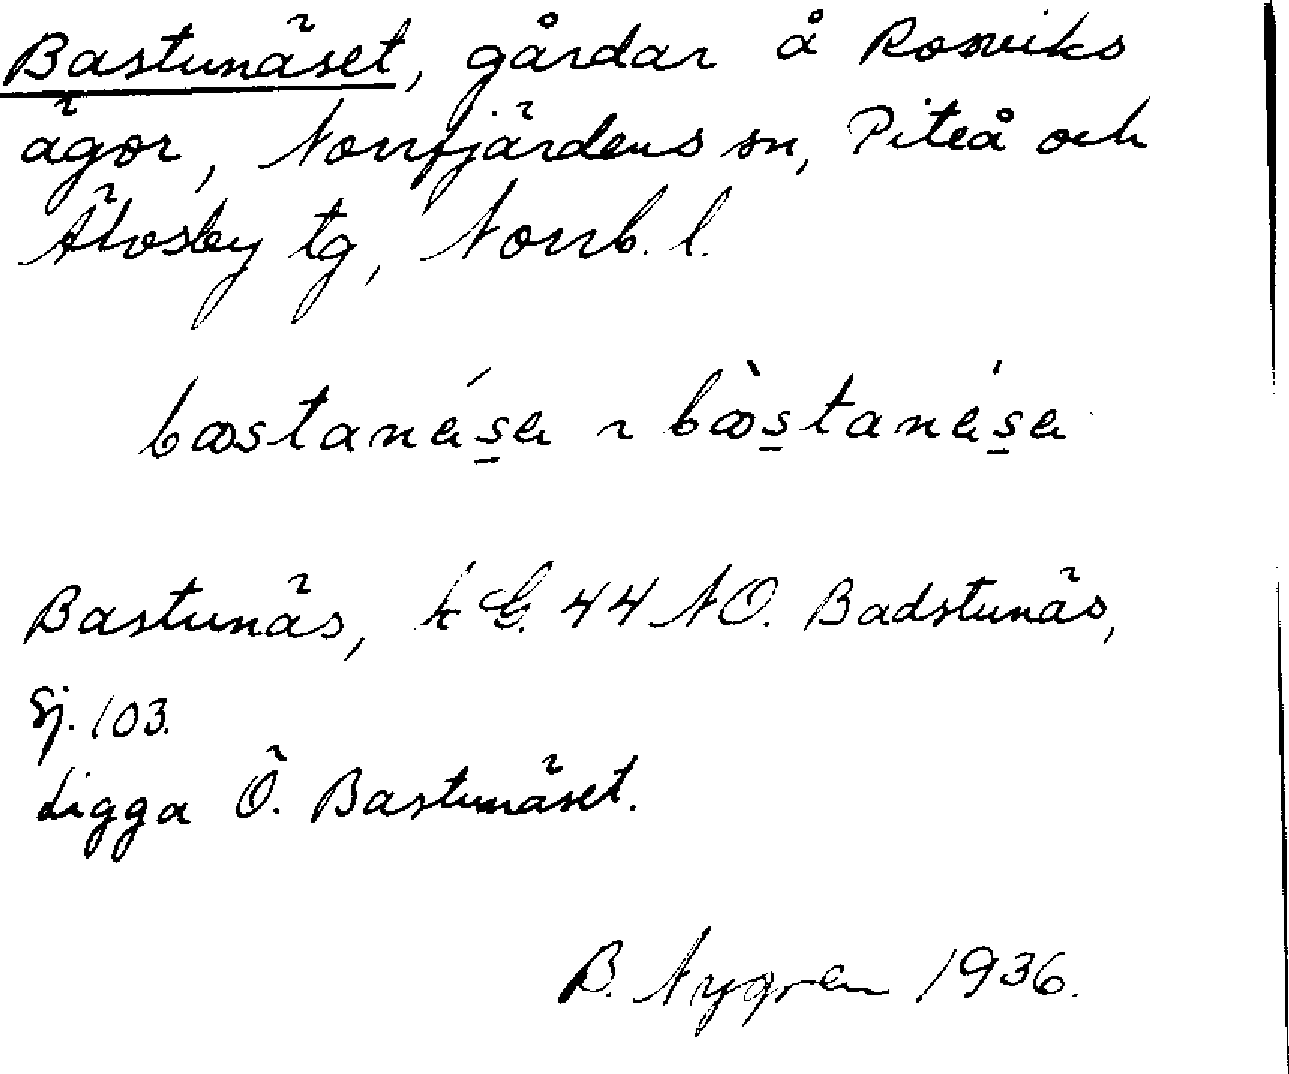 Bastunäset, gårdar å Rosviks
ägor, Norrfjärdens sn, Piteå och
Älvsby tg, Norrb. l.
bæstanése ~ bæ̀stanése
Bastunäs, k G. 44 NO. Badstunäs,
Sj. 103.
Ligga Ö. Bastunäset.
B. Nygren 1936.